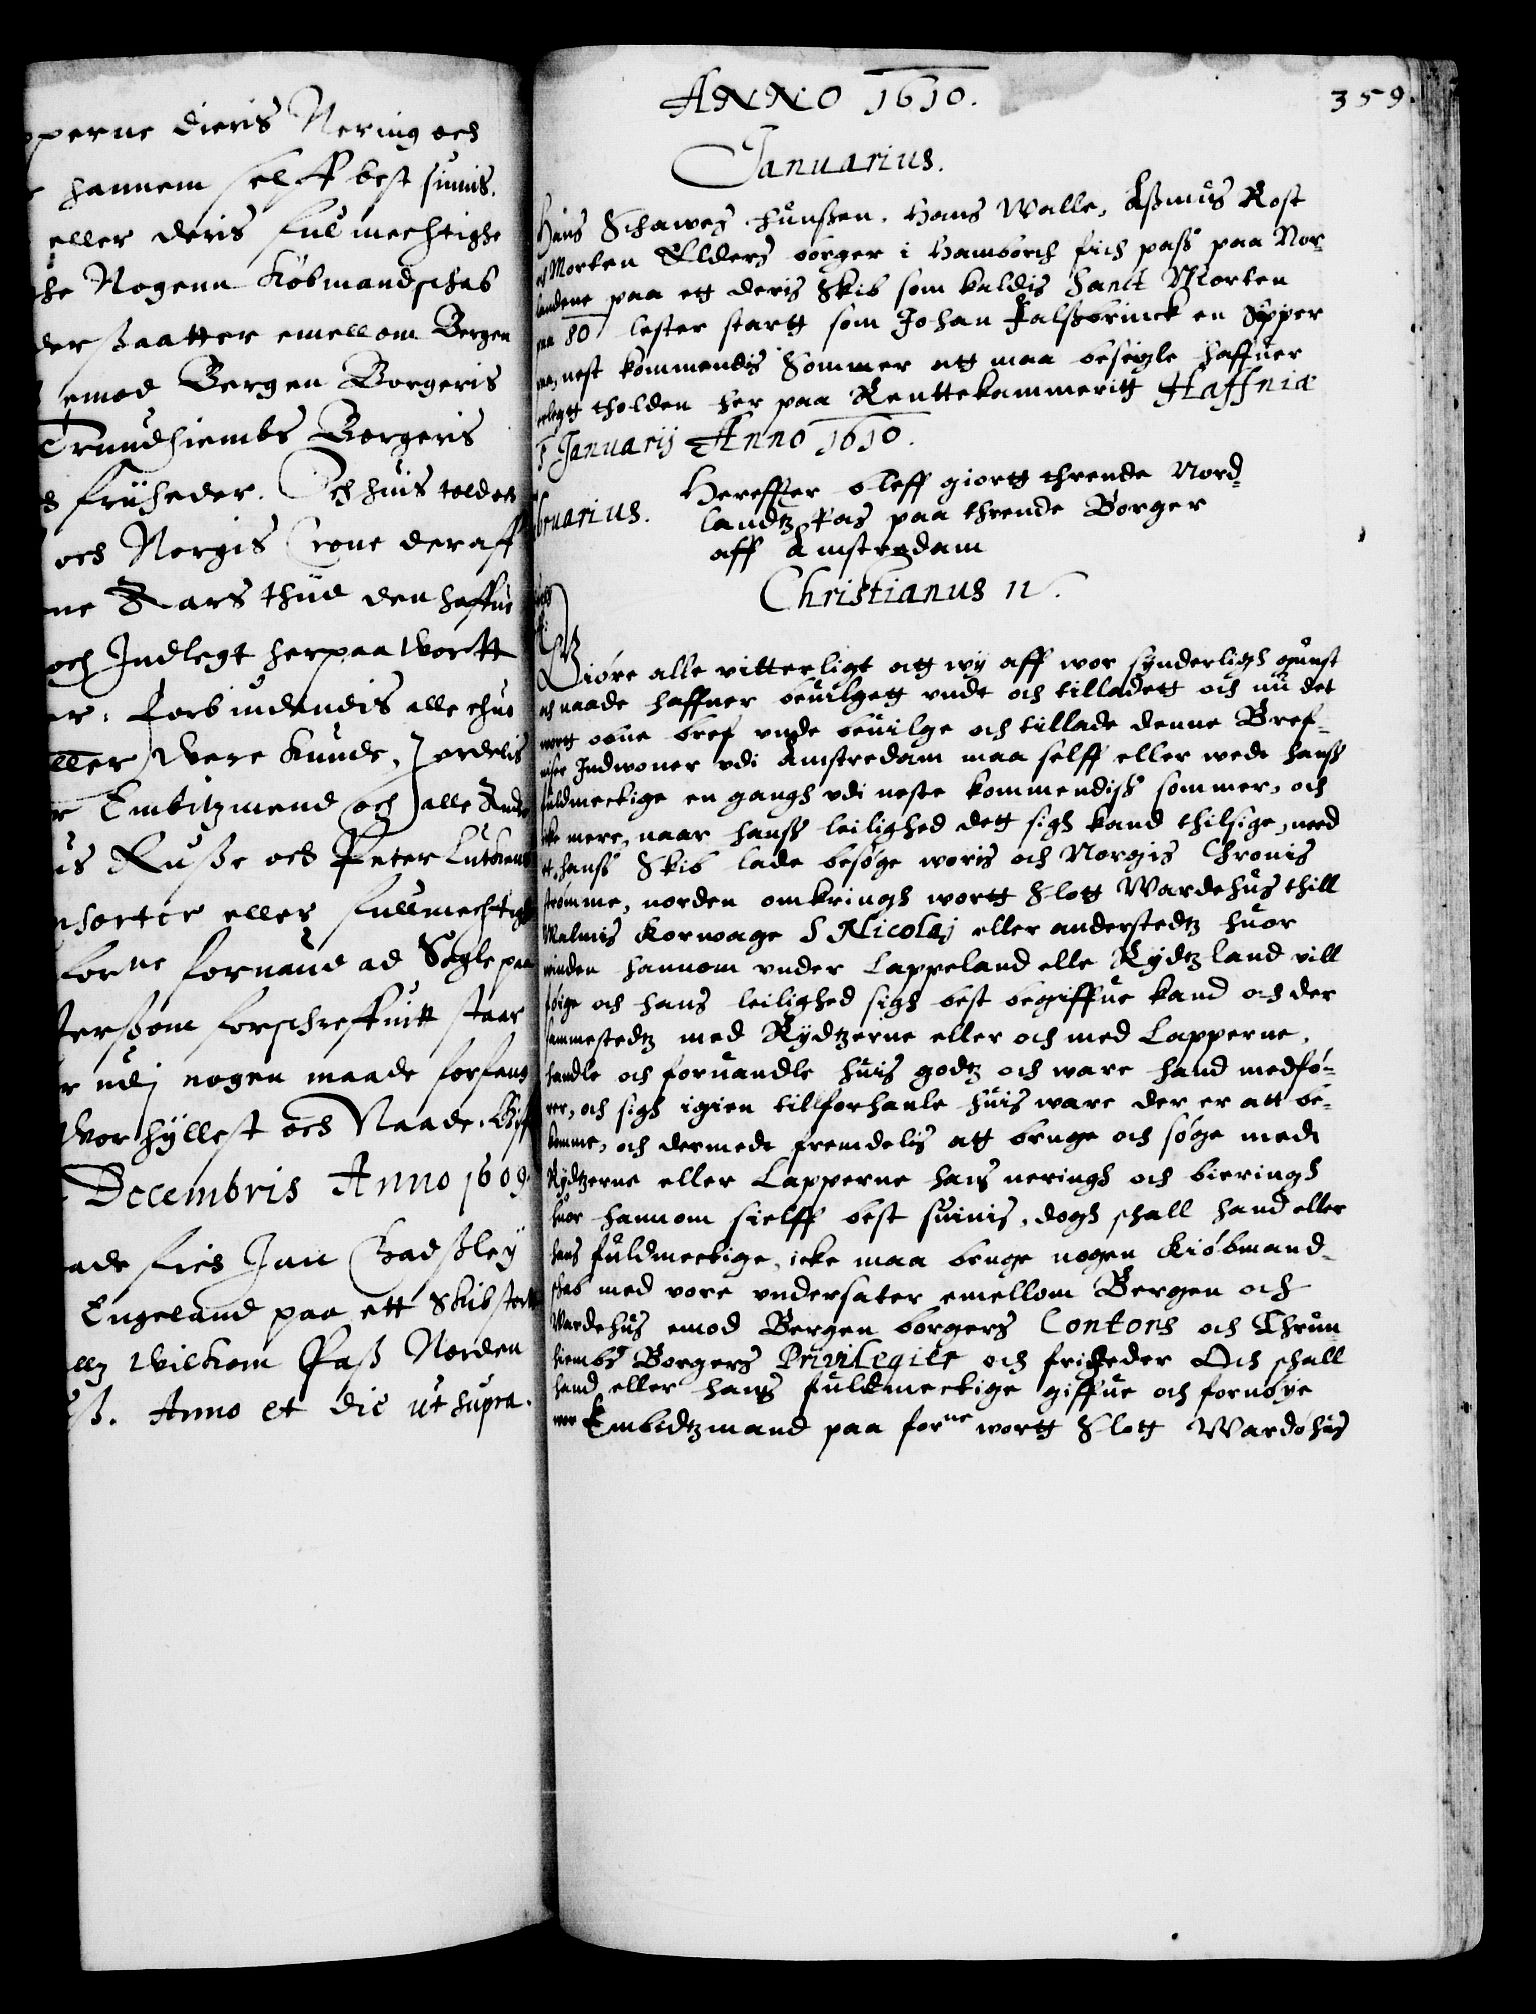 perne dieris Nering och
hannem self best sunnis.
eller deris fulmechtighe
Nogenn Købmandschab
dersaatter emellom Bergen
emod Bergen Borgeris
Trundhiembs Borgeris
friiheder. Och huis tolden
och Norgis Crone deraff
Aars thiid den haffue
och Indlegt herpaa wortt
forbiudendis alle ehuo
eller were kunde, ordelis
Embitzmend och alle Andre
Russe och Peter Lutkens
eller fullmechtige
forne fornaud ad Segle paa
dersom forschreffuitt staar
udj nogen maade forfang
Wor hyllest och Naade. Giff
Decembris Anno 1609.
fich Jan
Engeland paa ett Skib
Wilkom Pass Norden
Anno et die ut supra.
359.
ANNO 1610.
Januarius.
Hans Schawes hunssen. Hans Walle, Assmus Rost
Morten Elders borger i Hamborch fich pass paa Nor-
landene paa ett deris Skib som kaldis Sanct Morten
paa 80 lester startt som Johan Falssbrinck en Skipper
paa, nest kommendis Sommer att maa beseigle haffuer
erlegtt tholden her paa Renttekammeritt Haffniæ
Januarij Anno 1610.
bruarius.
Hereffter bleff giortt thrende Nord-
landtz Pas paa thrende Borger
aff Amsterdam
Christianus 4.
Giøre alle vitterligt att wij aff wor synderligh gunst
och naade haffuer beuilgett vndt och tilladett och nu det
mett obne bref vnde beuilge och tillade denne Bref-
uiser Indwoner vdi Amstredam maa selff eller wede hanss
fuldmectige en gangh vdi neste kommendish sommer, och
icke mere, naar hanss leilighed dett sigh kand thilsige, med
ett hanss Skib lade besøge woris och Norgis Chronis
strømme, norden omkringh wortt Slott Wardehus thill
Malmis Korwage S Nicolaj eller anderstedtz huor
winden hannom vnder Lappeland elle Rydtz land vill
føige och hans leilighed sigh best begiffue kand och der
sammestedtz med Rydtzerne eller och med Lapperne,
handle och foruandle huis godtz och ware hand medfø-
rer, och sigh igien tillforhanle huis ware der er att be-
komme, och dermede fremdelis att bruge och søge med
Rydtzerne eller Lapperne hans neringh och bieringh
huor hannom sielff best suinis, dogh schall hand eller
hans fuldmectige, icke maa bruge nogen Kiøbmand-
skab med vore vndersater emellom Bergen och
Wardehus emod Bergen borgers Contors och Thrun-
hiembs Borgers Privilegier och friheder Och schall
hand eller hans fuldmectige giffue och fornøye
wor Embidtzmand paa forne wortt Slott Wardøhus